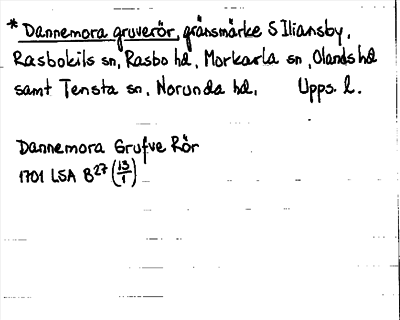 * Dannemora gruverör, gränsmärke S Iliansby,
Rasbokils sn, Rasbo hd, Morkarla sn, Olands hd
samt Tensta sn, Norunda hd, Upps. l.
Dannemora Grufve Rör
1701 LSA B27 (13/1)